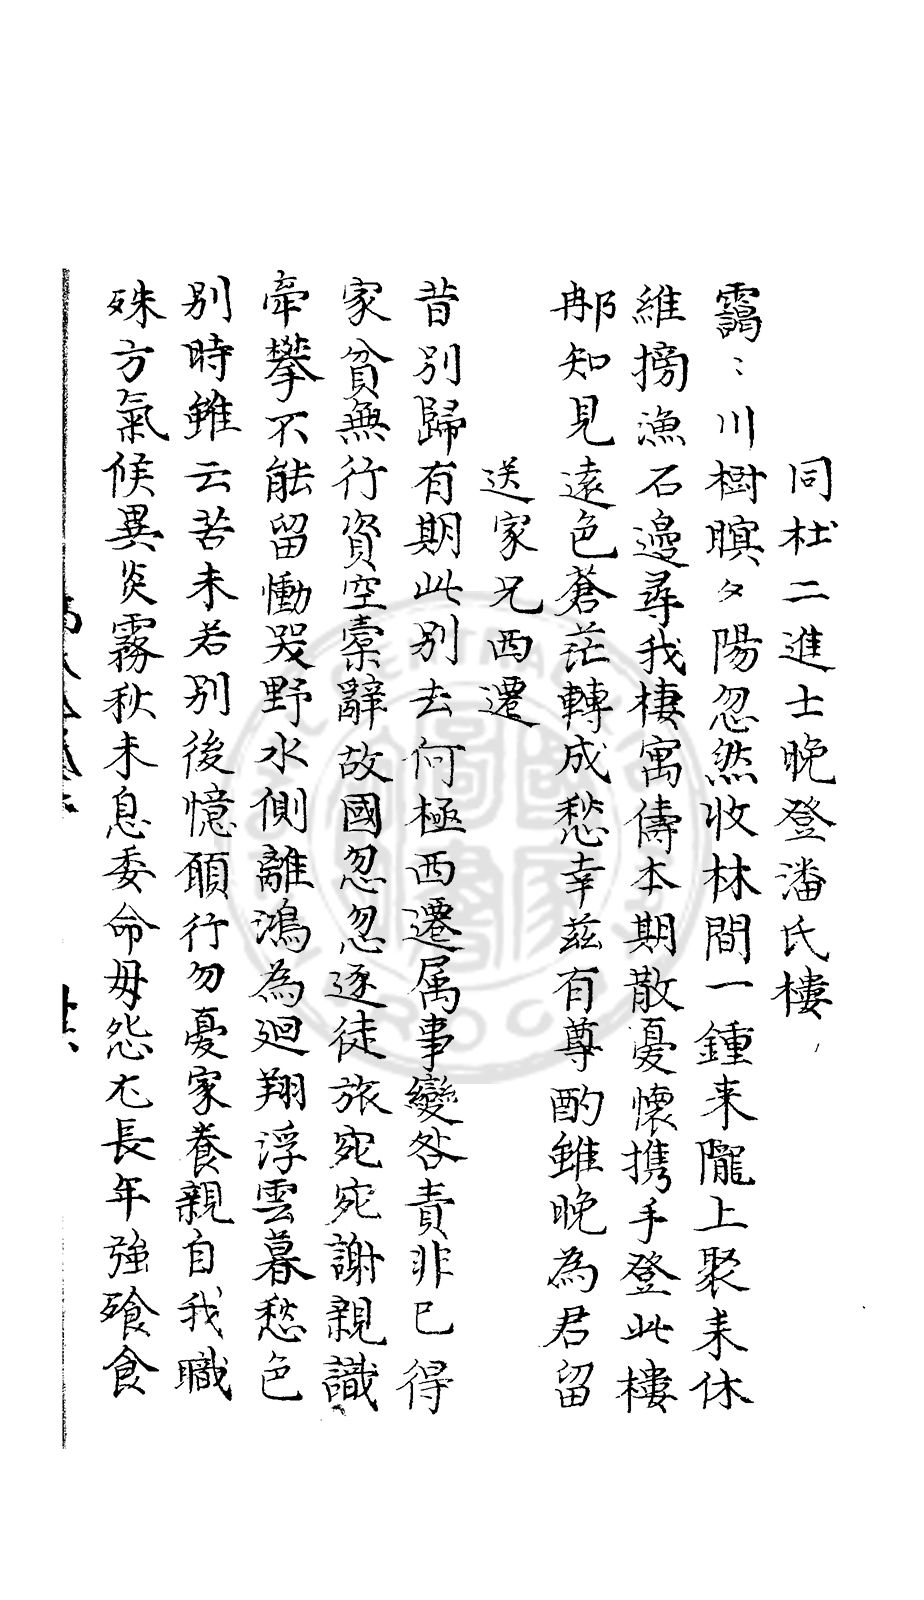 同杜二進士晚登潘氏樓
靄〻川樹暝夕陽忽然收林間一鍾来隴上聚耒休
維搒漁石邊尋我棲寓儔本期散憂懷携手登此樓
那知見遠色蒼茫轉成愁幸兹有尊酌雖晚為君留
送家兄西遷
昔別歸有期此別去何極西遷属事變咎責非已得
家貧無行資空槖辭故國忽忽逐徒旅宛宛謝親識
牽攀不能留慟哭野水側離鴻為廻翔浮雲暮愁色
別時雖云苦未若別後憶願行勿憂家養親自我職
殊方氣候異炎霧秋未息委命毋怨尤長年強飱食